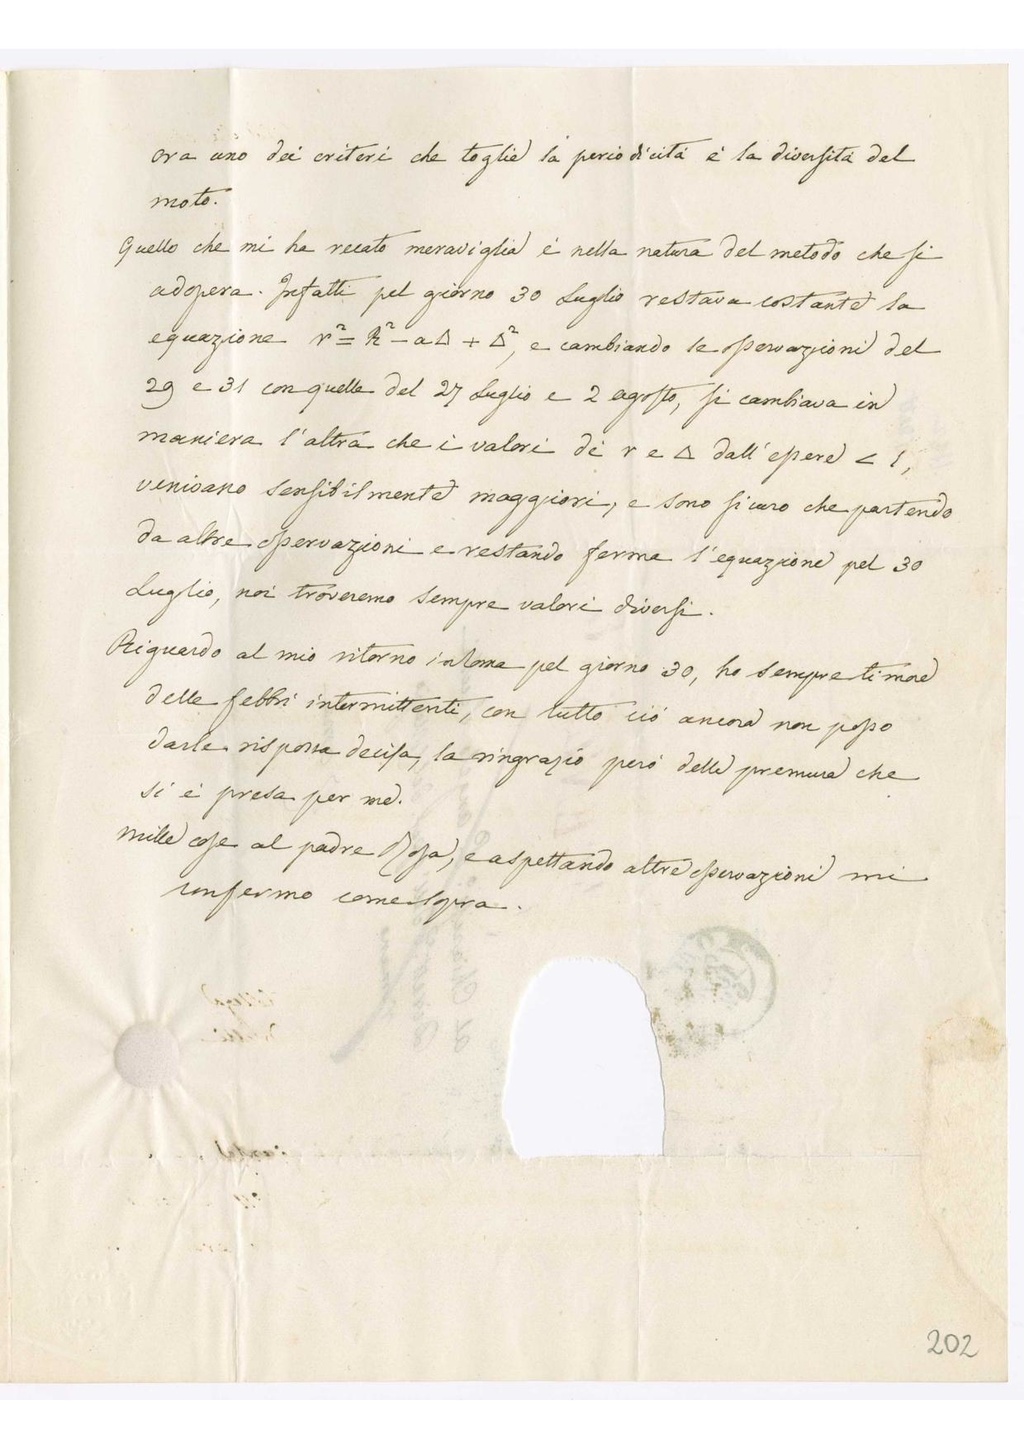 ora uno dei criteri che toglie la periodicità é la diversità del
moto.
Quello che mi ha recato meraviglia é nella natura del metodo che si
adopera. Infatti pel giorno 30 Luglio restava costante la
equazione r² = R² – aΔ + Δ², e cambiando le osservazioni del
29 e 31 con quelle del 27 Luglio e 2 agosto, si cambiava in
maniera l'altra che i valori di r e Δ dall'essere < 1,
venivano sensibilmente maggiori, e sono sicuro che partendo
da altre osservazioni e restando ferma l'equazione pel 30
Luglio, noi troveremo sempre valori diversi.
Riguardo al mio ritorno in Roma pel giorno 30, ho sempre timore
delle febbri intermittenti, con tutto ciò ancora non posso
darle risposta decisa, la ringrazio peró della premura che
si é presa per me.
Mille cose al padre Rosa, e aspettando altre osservazioni mi
confermo come sopra.
202